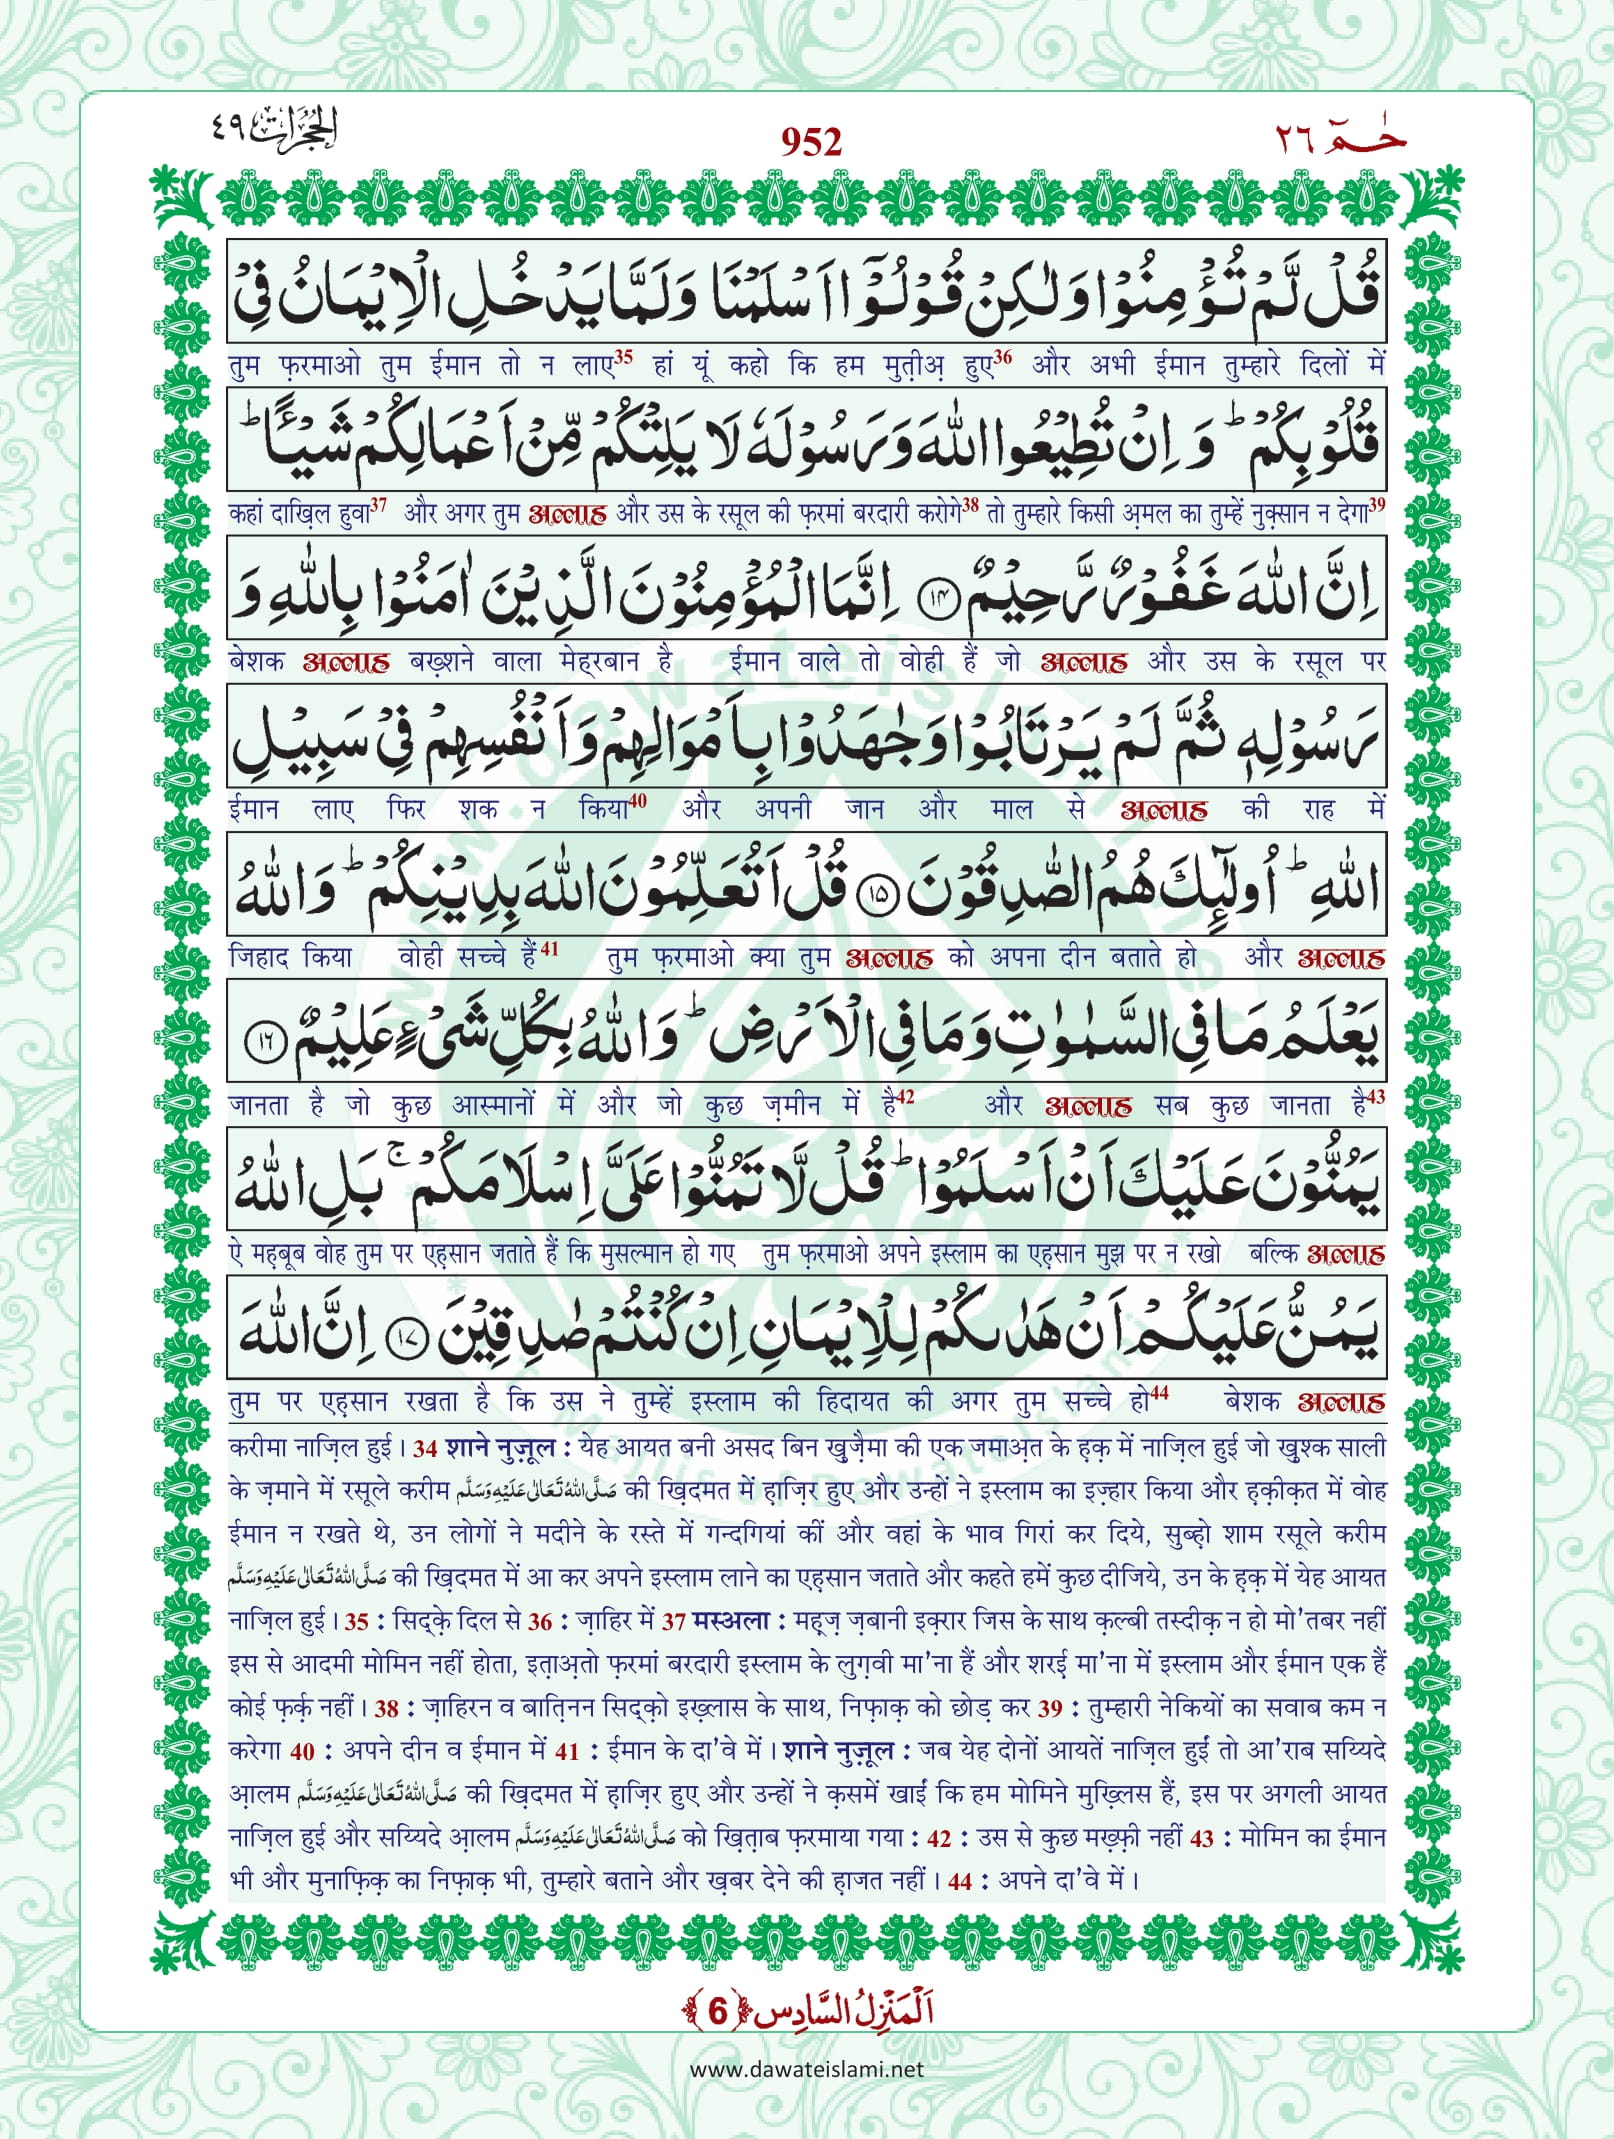 الحجرات ٤٩
952
حٰمٓ ٢٦
قُلْ لَّمْ تُؤْمِنُوْا وَلٰكِنْ قُوْلُوْۤا اَسْلَمْنَا وَلَمَّا یَدْخُلِ الْاِیْمَانُ فِیْ
तुम फ़रमाओ तुम ईमान तो न लाए35 हां यूं कहो कि हम मुत़ीअ़ हुए36 और अभी ईमान तुम्हारे दिलों में
قُلُوْبِكُمْ ؕ وَ اِنْ تُطِیْعُوا اللّٰهَ وَ رَسُوْلَهٗ لَا یَلِتْكُمْ مِّنْ اَعْمَالِكُمْ شَیْـًٔا ؕ
कहां दाख़िल हुवा37 और अगर तुम अल्लाह और उस के रसूल की फ़रमां बरदारी करोगे38 तो तुम्हारे किसी अ़मल का तुम्हें नुक़्सान न देगा39
اِنَّ اللّٰهَ غَفُوْرٌ رَّحِیْمٌ ﴿۱۴﴾ اِنَّمَا الْمُؤْمِنُوْنَ الَّذِیْنَ اٰمَنُوْا بِاللّٰهِ وَ
बेशक अल्लाह बख़्शने वाला मेह्रबान है ईमान वाले तो वोही हैं जो अल्लाह और उस के रसूल पर
رَسُوْلِهٖ ثُمَّ لَمْ یَرْتَابُوْا وَ جٰهَدُوْا بِاَمْوَالِهِمْ وَ اَنْفُسِهِمْ فِیْ سَبِیْلِ
ईमान लाए फिर शक न किया40 और अपनी जान और माल से अल्लाह की राह में
اللّٰهِ ؕ اُولٰٓىِٕكَ هُمُ الصّٰدِقُوْنَ ﴿۱۵﴾ قُلْ اَتُعَلِّمُوْنَ اللّٰهَ بِدِیْنِكُمْ ؕ وَ اللّٰهُ
जिहाद किया वोही सच्चे हैं41 तुम फ़रमाओ क्या तुम अल्लाह को अपना दीन बताते हो और अल्लाह
یَعْلَمُ مَا فِی السَّمٰوٰتِ وَ مَا فِی الْاَرْضِ ؕ وَ اللّٰهُ بِكُلِّ شَیْءٍ عَلِیْمٌ ﴿۱۶﴾
जानता है जो कुछ आस्मानों में और जो कुछ ज़मीन में है42 और अल्लाह सब कुछ जानता है43
یَمُنُّوْنَ عَلَیْكَ اَنْ اَسْلَمُوْا ؕ قُلْ لَّا تَمُنُّوْا عَلَیَّ اِسْلَامَكُمْ ۚ بَلِ اللّٰهُ
ऐ मह़बूब वोह तुम पर एह़सान जताते हैं कि मुसल्मान हो गए तुम फ़रमाओ अपने इस्लाम का एह़सान मुझ पर न रखो बल्कि अल्लाह
یَمُنُّ عَلَیْكُمْ اَنْ هَدٰىكُمْ لِلْاِیْمَانِ اِنْ كُنْتُمْ صٰدِقِیْنَ ﴿۱۷﴾ اِنَّ اللّٰهَ
तुम पर एह़सान रखता है कि उस ने तुम्हें इस्लाम की हिदायत की अगर तुम सच्चे हो44 बेशक अल्लाह
करीमा नाज़िल हुई। 34 शाने नुज़ूल : येह आयत बनी असद बिन ख़ुज़ैमा की एक जमाअ़त के ह़क़ में नाज़िल हुई जो ख़ुश्क साली
के ज़माने में रसूले करीम صَلَّی اللهُ تَعَالٰی عَلَیْهِ وَسَلَّم की ख़िदमत में ह़ाज़िर हुए और उन्हों ने इस्लाम का इज़्हार किया और ह़क़ीक़त में वोह
ईमान न रखते थे, उन लोगों ने मदीने के रस्ते में गन्दगियां कीं और वहां के भाव गिरां कर दिये, सुब्ह़ो शाम रसूले करीम
صَلَّی اللهُ تَعَالٰی عَلَیْهِ وَسَلَّم की ख़िदमत में आ कर अपने इस्लाम लाने का एह़सान जताते और कहते हमें कुछ दीजिये, उन के ह़क़ में येह आयत
नाज़िल हुई। 35 : सिद्क़े दिल से 36 : ज़ाहिर में 37 मस्अला : मह़्ज़ ज़बानी इक़्रार जिस के साथ क़ल्बी तस्दीक़ न हो मो'तबर नहीं
इस से आदमी मोमिन नहीं होता, इत़ाअ़तो फ़रमां बरदारी इस्लाम के लुग़वी मा'ना हैं और शरई मा'ना में इस्लाम और ईमान एक हैं
कोई फ़र्क़ नहीं। 38 : ज़ाहिरन व बात़िनन सिद्क़ो इख़्लास के साथ, निफ़ाक़ को छोड़ कर 39 : तुम्हारी नेकियों का सवाब कम न
करेगा 40 : अपने दीन व ईमान में 41 : ईमान के दा'वे में। शाने नुज़ूल : जब येह दोनों आयतें नाज़िल हुईं तो आ'राब सय्यिदे
आ़लम صَلَّی اللهُ تَعَالٰی عَلَیْهِ وَسَلَّم की ख़िदमत में ह़ाज़िर हुए और उन्हों ने क़समें खाईं कि हम मोमिने मुख़्लिस हैं, इस पर अगली आयत
नाज़िल हुई और सय्यिदे आ़लम صَلَّی اللهُ تَعَالٰی عَلَیْهِ وَسَلَّم को ख़ित़ाब फ़रमाया गया : 42 : उस से कुछ मख़्फ़ी नहीं 43 : मोमिन का ईमान
भी और मुनाफ़िक़ का निफ़ाक़ भी, तुम्हारे बताने और ख़बर देने की ह़ाजत नहीं। 44 : अपने दा'वे में।
اَلْمَنْزِلُ السَّادِس ﴿6﴾
www.dawateislami.net